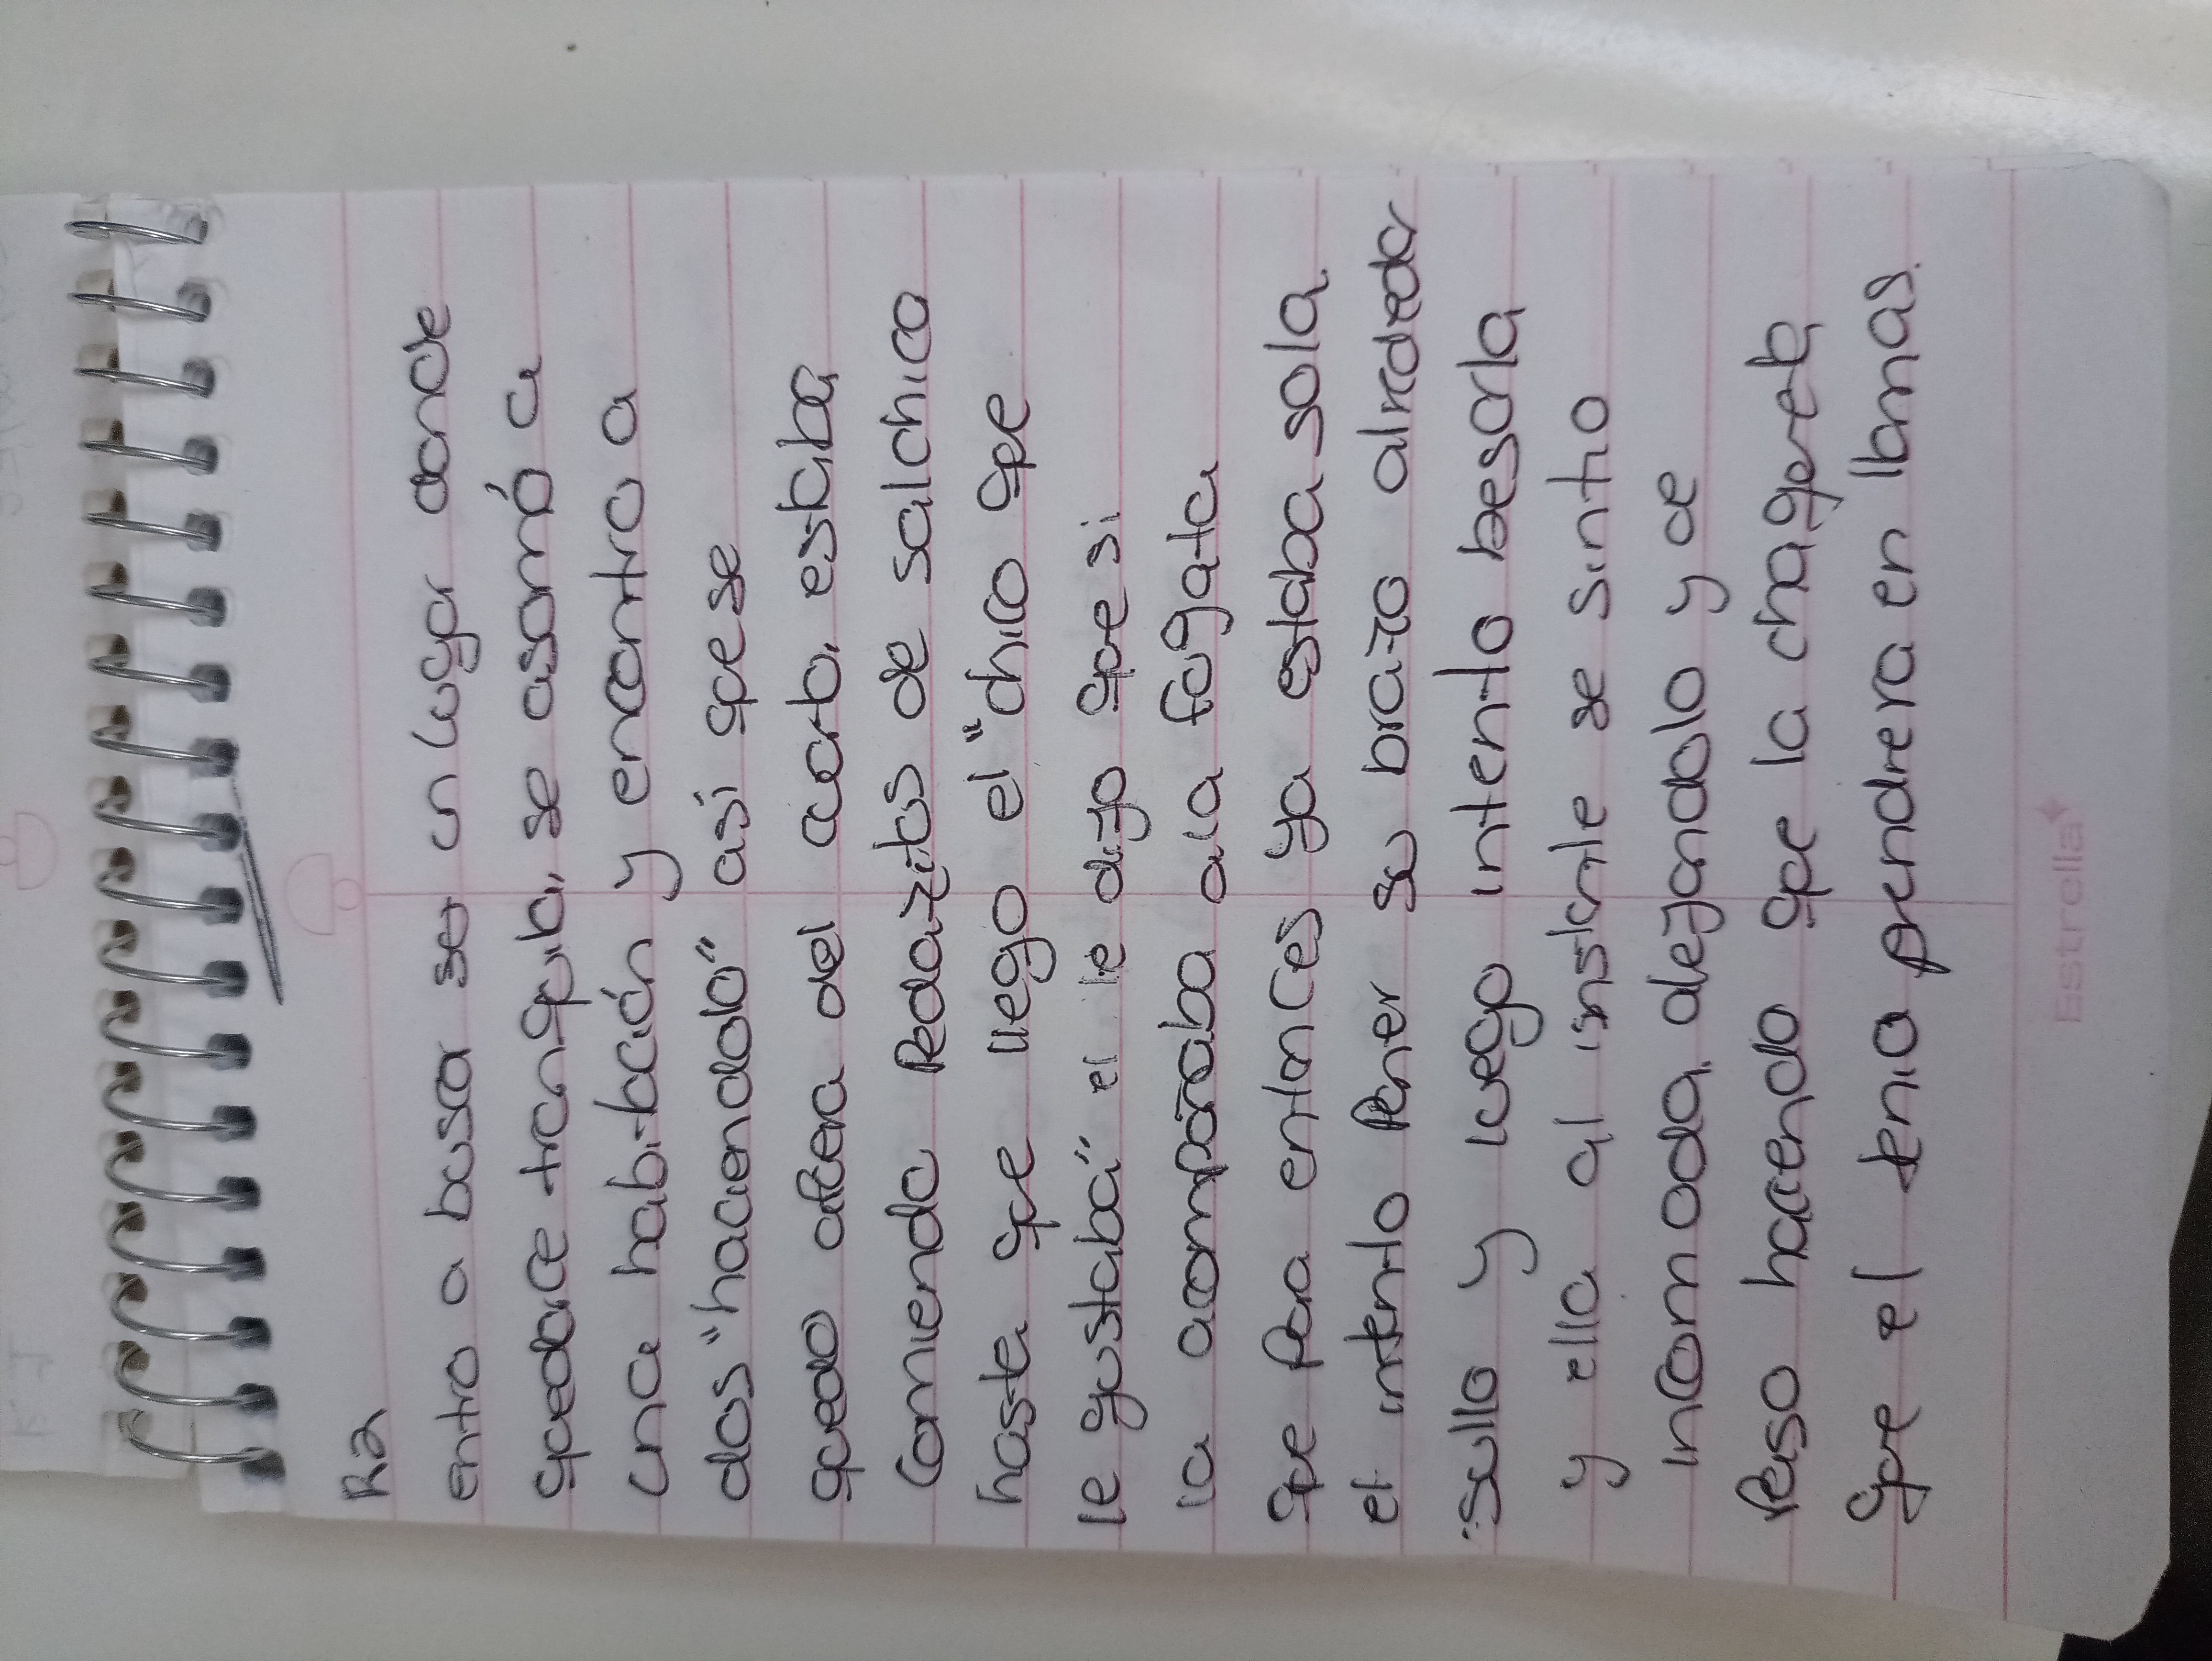 R2
entro a buscar ser un lugar donde
quedarce tranquila, se asomó a
una habitación y encontro a
dos "haciendolo" asi que se
quedo afuera del cuarto, estaba
comiendo Pedazitos de salchica
hasta que llego el "chico que
le gustaba" el le dijo que si
la acompañaba a la fogata
que Para entonces ya estaba sola.
el intento Poner su brazo alrededor
sullo y luego intento besarla
y ella al instante se sintio
incomoda, alejandolo y de
Paso haciendo que la chaqueta
que el tenia prendiera en llamas.
Estrella